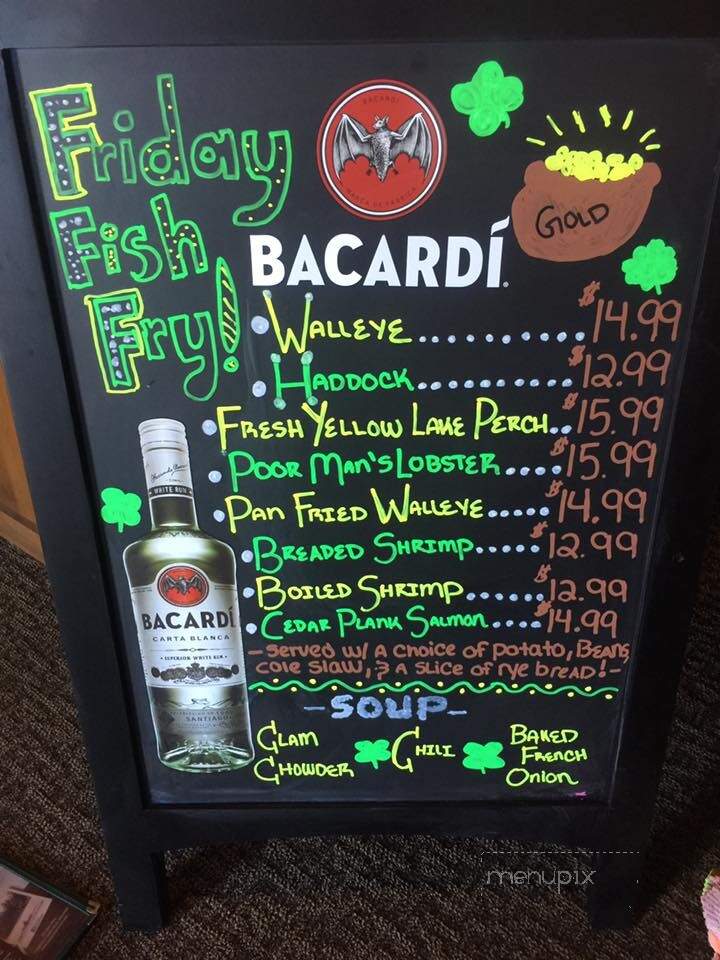 Friday
Fish
Fry!
BACARDI
BACARDÍ
GOLD
• WALLEYE............ $14.99
• HADDOCK............ $12.99
• FRESH YELLOW LAKE PERCH.. $15.99
• POOR MAN'S LOBSTER.... $15.99
• PAN FRIED WALLEYE..... $14.99
• BREADED SHRIMP..... $12.99
• BOILED SHRIMP...... $12.99
• CEDAR PLANK SALMON.... $14.99
- served w/ a choice of potato, BEANS,
cole slaw, & a slice of rye bread! -
- SOUP -
CLAM
CHOWDER
CHILI
BAKED
FRENCH
ONION
WHITE RUM
BACARDÍ
CARTA BLANCA
• SUPERIOR WHITE RUM •
SANTIAGO
menupix